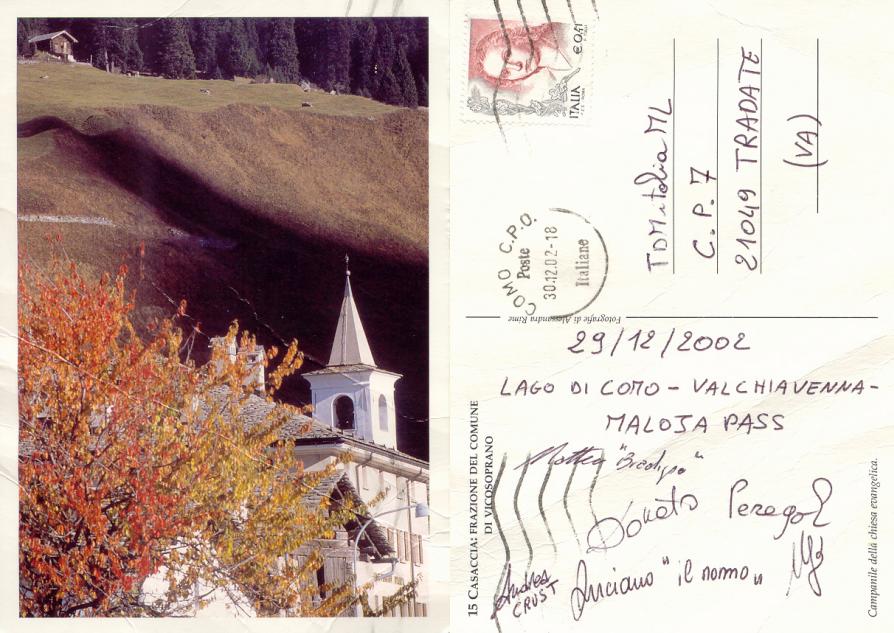 ITALIA € 0,41
COMO C.P.O.
Poste
30.12.02-18
Italiane
TDMitalia ML
C.P. 7
21049 TRADATE
(VA)
Fotografie di Alessandra Rime
29/12/2002
LAGO DI COMO - VALCHIAVENNA -
MALOJA PASS
15 CASACCIA: FRAZIONE DEL COMUNE
DI VICOSOPRANO
Matteo
Donato
Andrea
CRUST
Luciano "il nonno"
Campanile della chiesa evangelica.